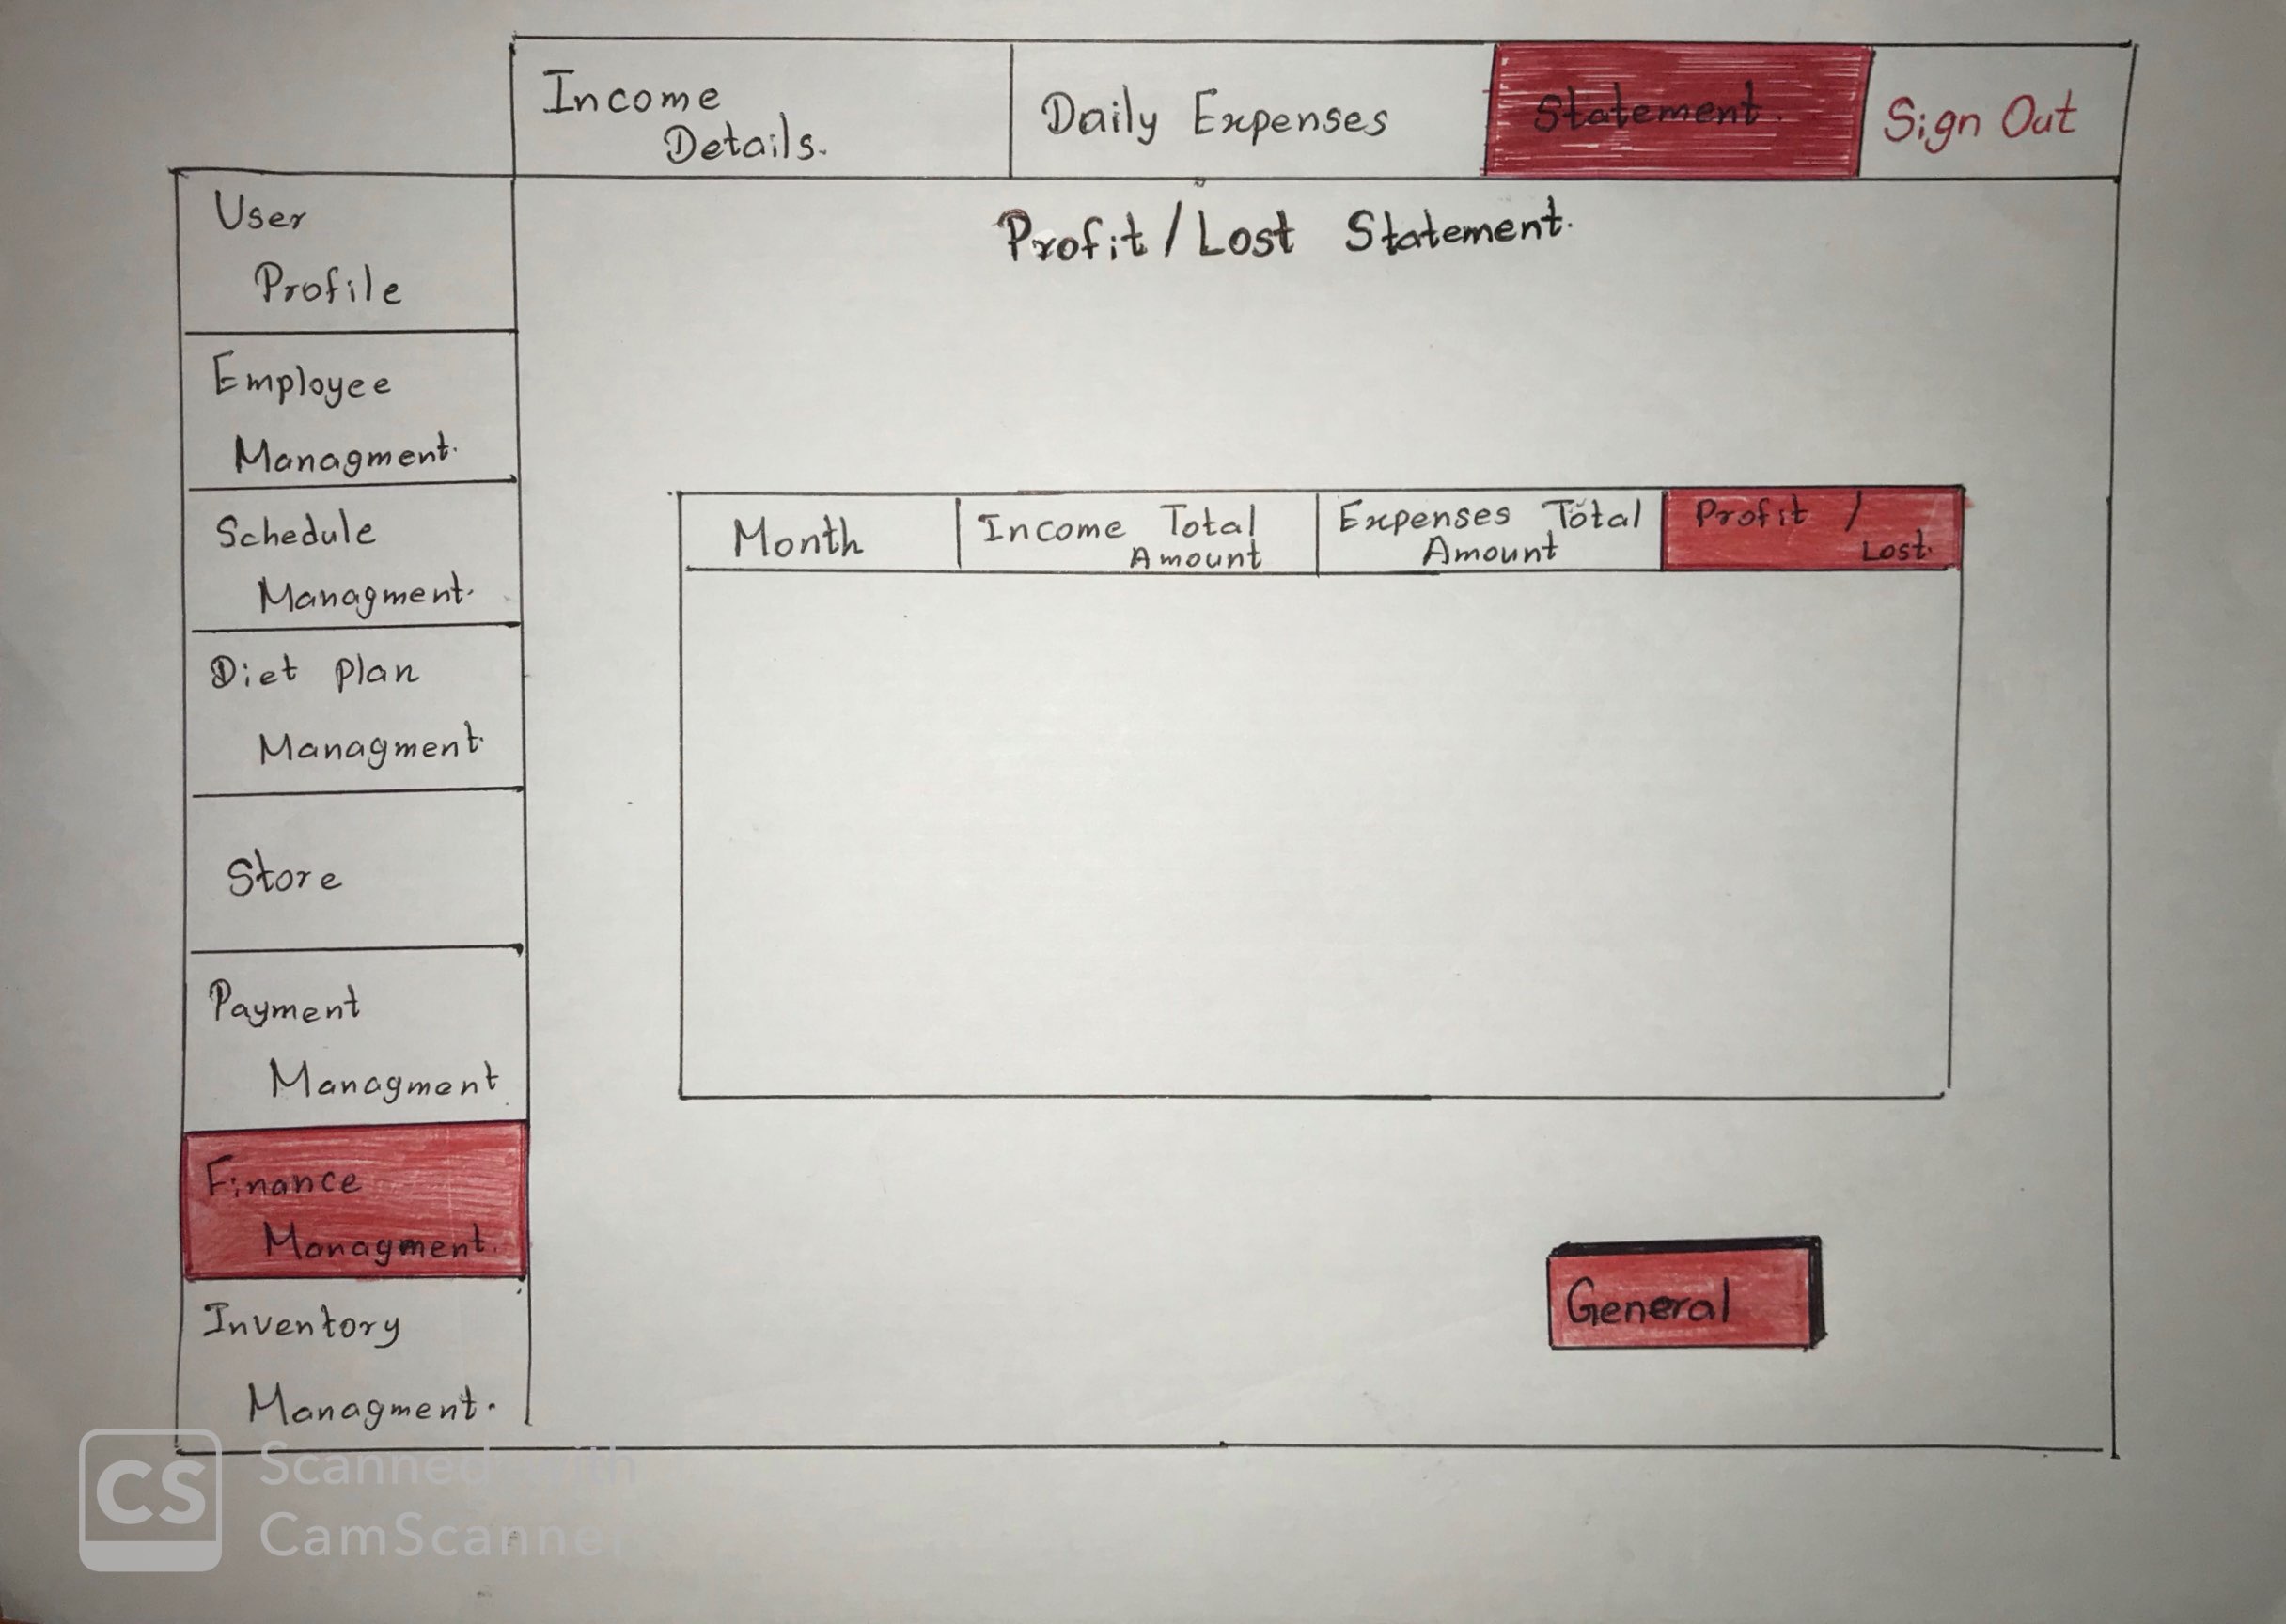 Income
Details.
Daily Expenses
Statement.
Sign Out
Profit / Lost Statement.
User
Profile
Employee
Managment.
Schedule
Managment.
Diet Plan
Managment.
Store
Payment
Managment
Finance
Managment.
Inventory
Managment.
Month
Income Total
Amount
Expenses Total
Amount
Profit /
Lost.
General
CS
Scanned with
CamScanner